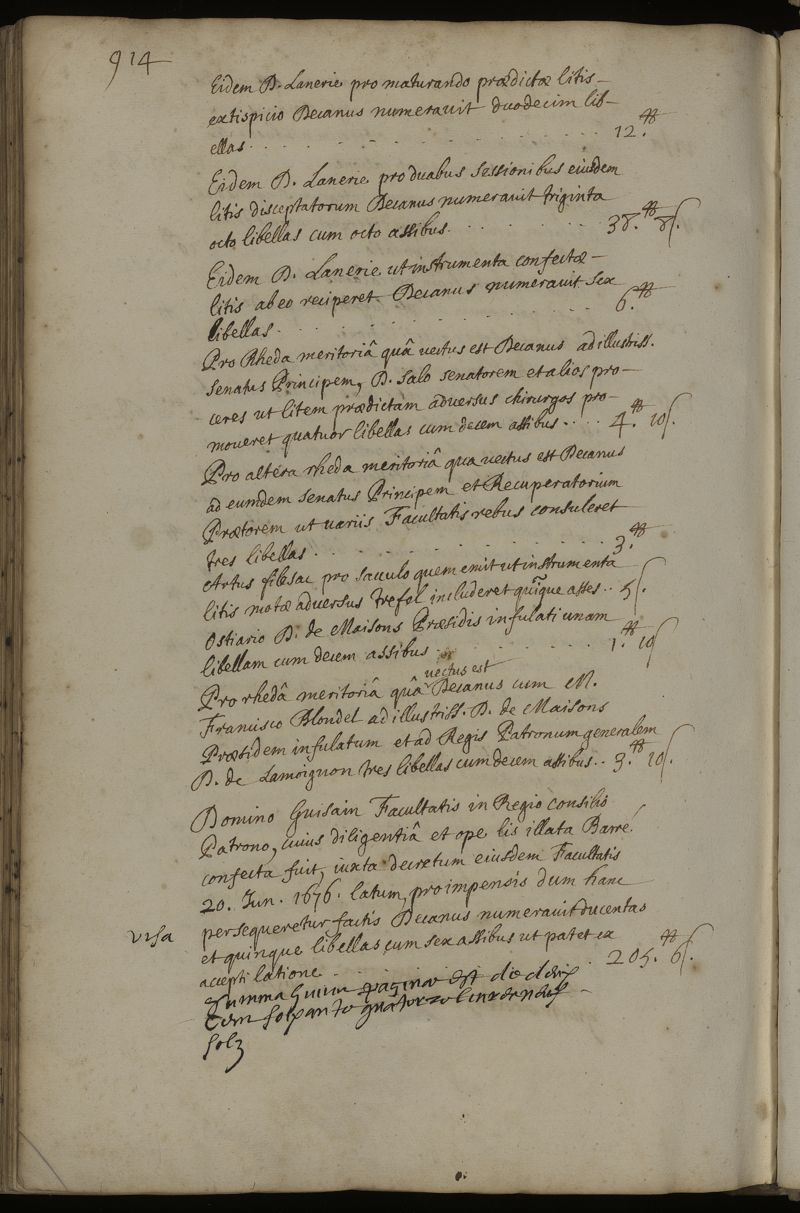 914
Eidem D. Lanerie pro maturando prædictæ litis
extispicio Decanus numeravit duodecim lib-
ellas . . . . . . . . . . 12.₶
Eidem D. Lanerie pro duabus sessionibus eiusdem
litis disceptatorum Decanus numerauit triginta
octo libellas cum octo assibus. . . . . . 38.₶ 8ſ.
Eidem D. Lanerie ut instrumenta confectæ
litis ab eo reciperet Decanus numerauit sex
libellas . . . . . . . . . . 6.₶
Pro Rheda meritoriâ quâ uectus est Decanus ad illustriss.
Senatus Principem, D. Salo senatorem et alios pro-
ceres ut litem prædictam adversus chirurgos pro-
moueret quatuor libellas cum decem assibus . . . . 4.₶ 10ſ.
Pro altera rheda meritoriâ qua uectus est Decanus
ad eumdem Senatus Principem et Recuperatorium
Prætorem ut uariis Facultatis rebus consuleret
tres libellas . . . . . . . . . . 3.₶
Artus filesac pro sacculo quem emit ut instrumenta
litis motæ adversus trefel includeret quīque asses . . 5ſ.
Ostiario D. de Maisons Præsidis infulati unam
libellam cum decem assibus . . . . . . . 1.₶ 10ſ
Pro rhedâ meritoriâ quâ uectus est Decanus cum M.
Francisco Blondel ad illustriss. D. de Maisons
Præsidem infulatum et ad Regis Patronum generalem
D. de Lamoignon tres libellas cum decem assibus . . 3.₶ 10ſ.
Domino Guisain Facultatis in Regio consilio
Patrono, cuius diligentiâ et ope lis illata Barré
confecta fuit, iuxta decretum eiusdem Facultatis
20. Jun. 1676. latum, pro impensis dum hanc
persequeretur factis Decanus numerauit ducentas
visa
et quinque libellas cum sex assibus ut patet ex
accepti latione . . . . . . . . . . 205.₶ 6ſ.
Summa huius paginæ est de deux
Cent soixante quatorze livres neuf
solz